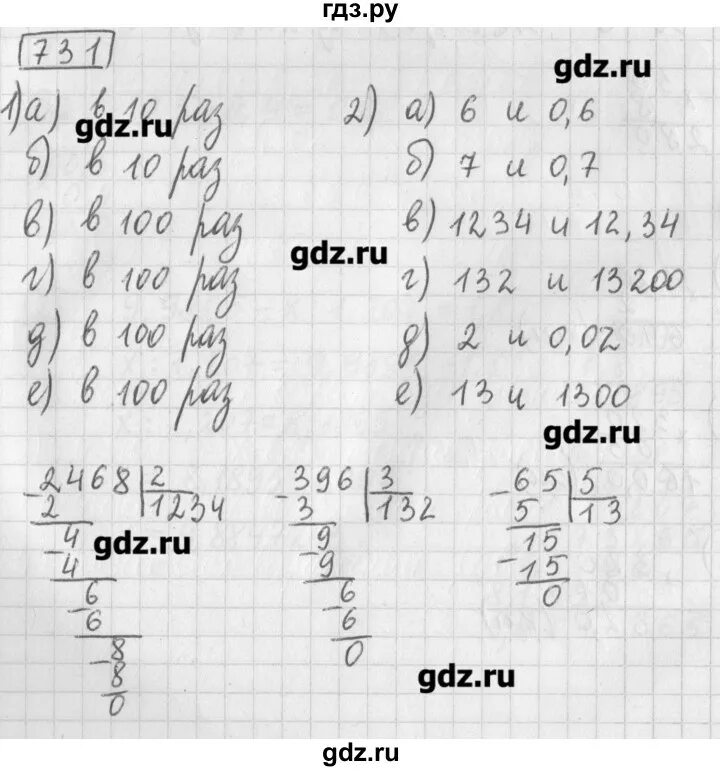 гдз.ру
731
gdz.ru
1) а) в 10 раз
2) а) 6 и 0,6
gdz.ru
б) в 10 раз
б) 7 и 0,7
в) в 100 раз
в) 1234 и 12,34
gdz.ru
г) в 100 раз
г) 132 и 13200
д) в 100 раз
д) 2 и 0,02
е) в 100 раз
е) 13 и 1300
gdz.ru
- 2468 | 2
2 1234
- 4
4
- 6
6
- 8
8
0
gdz.ru
- 396 | 3
3 132
- 9
9
- 6
6
0
- 65 | 5
5 13
- 15
15
0
gdz.ru
gdz.ru